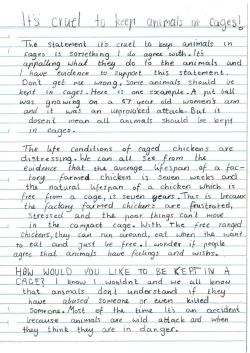 It's cruel to keep animals in cages!
The statement it's cruel to keep animals in
cages is something I do agree with. It's
appalling what they do to the animals and
I have evidence to support this statement.
Don't get me wrong, some animals should be
kept in cages. Here is one example. A pit bull
was gnawing on a 57 year old women's arm
and it was an unprovoked attack. But it
dosent mean all animals should be kept
in cages.
The life conditions of caged chickens are
distressing. We can all see from the
evidence that the average lifespan of a fac-
tory farmed chicken is seven weeks and
the natural lifespan of a chicken which is
free from a cage, is seven years. This is because
the factory farmed chickens are frustrated,
stressed and the poor things can't move
in the compact cage. With the free ranged
chickens, they can run around, eat when the want
to eat and just be free. I wonder if people
agree that animals have feelings and wishes.
HOW WOULD YOU LIKE TO BE KEPT IN A
CAGE? I know I wouldn't and we all know
that animals don't understand if they
have abused someone or even killed
someone. Most of the time it's an accident
because animals are wild attack and when
they think they are in danger.